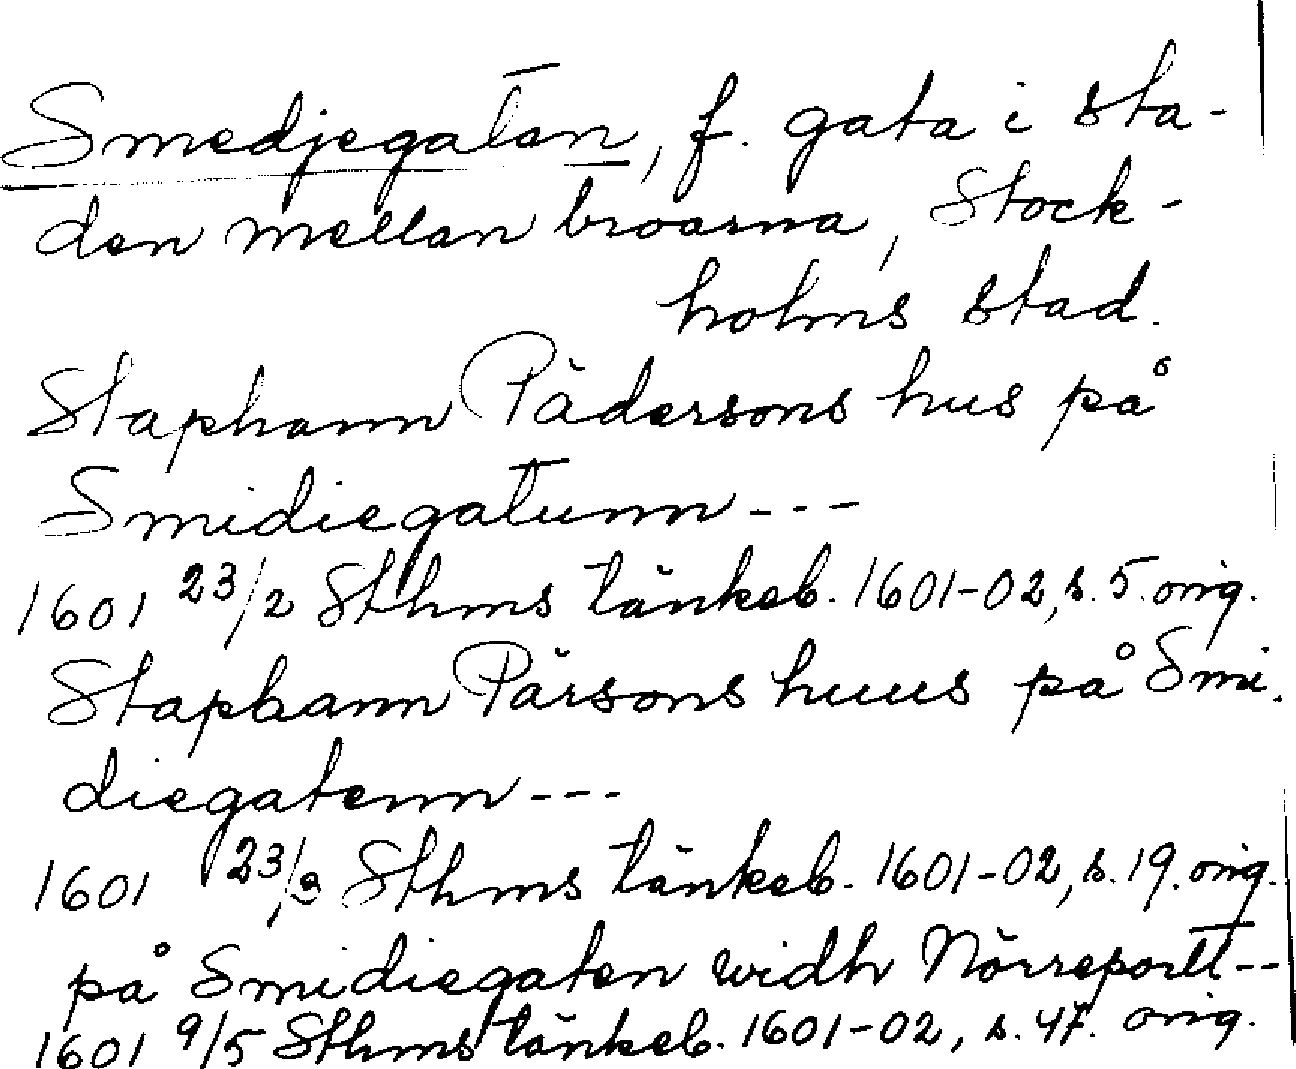 Smedjegatan, f. gata i sta-
den mellan broarna, Stock-
holms stad.
Staphann Pädersons hus på
Smidiegatunn ---
1601 23/2 Sthms tänkeb. 1601-02, s. 5. orig.
Staphann Pärsons huus på Smi.
diegatenn ---
1601 23/3 Sthms tänkeb. 1601-02, s. 19. orig.
på Smidiegaten widh Nörreportt --
1601 9/5 Sthms tänkeb. 1601-02, s. 47. orig.